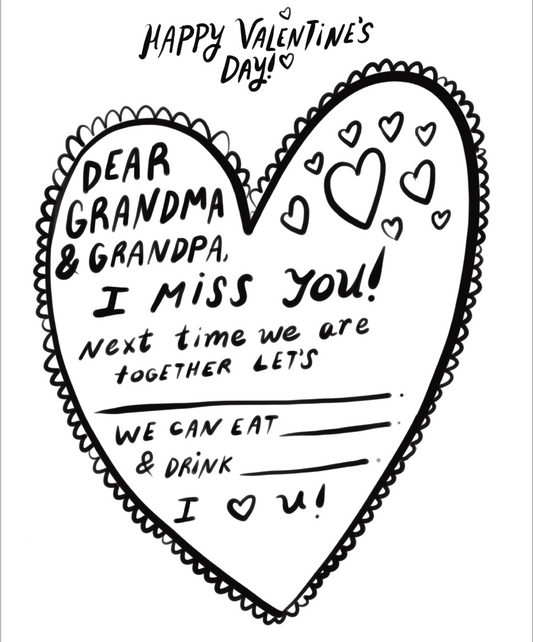 HAPPY VALENTINE'S
DAY!♡
DEAR
GRANDMA
& GRANDPA,
I MISS YOU!
Next time we are
TOGETHER LET'S
____________.
WE CAN EAT ______.
& DRINK ______.
I ♡ U!